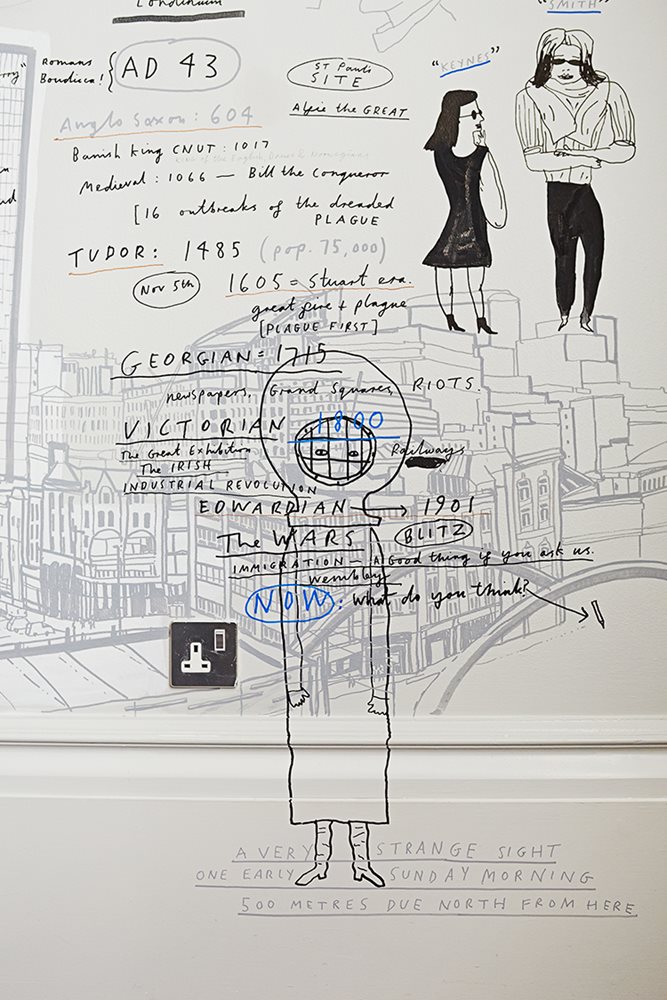 Londinium
"SMITH"
Romans
Boudicca!
AD 43
ST Pauls
SITE
"KEYNES"
Alfie the GREAT
Anglo Saxon: 604
Danish King CNUT: 1017
King of the English, Danes & Norwegians
Medieval: 1066 — Bill the Conqueror
[16 outbreaks of the dreaded
PLAGUE
TUDOR: 1485 (pop. 75,000)
Nov 5th
1605 = Stuart era.
great fire + plague
[PLAGUE FIRST]
GEORGIAN = 1715
newspapers, Grand Squares, RIOTS.
VICTORIAN 1800
The Great Exhibition
Railways
The IRISH
INDUSTRIAL REVOLUTION
EDWARDIAN → 1901
The WARS
BLITZ
IMMIGRATION — A Good thing if you ask us.
Wembley
NOW: What do you think?
A VERY STRANGE SIGHT
ONE EARLY SUNDAY MORNING
500 METRES DUE NORTH FROM HERE